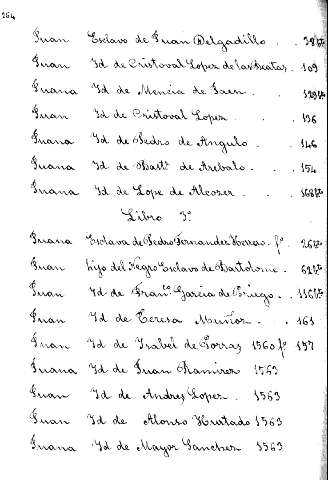 264
Juan Esclavo de Juan Delgadillo . . 39 vto
Juan Id de Cristoval Lopez de las Beatas . 109
Juana Id de Mencia de Jaen . . 129 vto
Juan Id de Cristoval Lopez . . 136
Juana Id de Pedro de Angulo . . 146
Juana Id de Bastn de Arebalo . . 154
Juana Id de Lope de Alcozer . . 168 vto
Libro 3º
Juana Esclava de Pedro Fernandez fº 26 vto
Juan hijo del Negro Esclavo de Bartolome . 62 vto
Juan Id de Franco Garcia de Priego . . 116 vto
Juan Id de Teresa Muñoz . . 161
Juan Id de Isabel de Porras 1560 fº 197
Juana Id de Juan Ramirez 1563
Juan Id de Andres Lopez . 1563
Juan Id de Alonso Hurtado 1563
Juana Id de Mayor Sanchez 1563